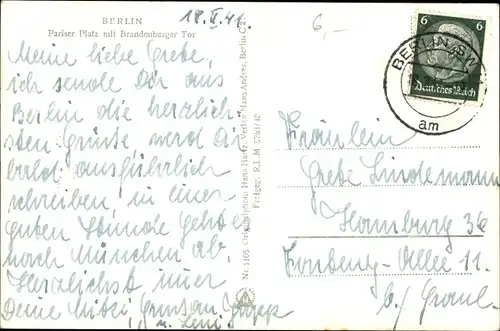 BERLIN
Pariser Platz mit Brandenburger Tor
18.V.41.
Meine liebe Grete,
ich sende Dir aus
Berlin die herzlich-
sten Grüße, werd Dir
bald ausführlich
schreiben, in einer
guten Stunde geht es
nach München ab.
Herzlichst immer
Deine Mitzi, Gruss an
u. Leni
Nr. 1105 Originalphoto Hans Hartz Verlag Hans Andres, Berlin
Freigeg. R.L.M 5763/40
6,-
6 6
Deutsches Reich
BERLIN SW
am
Fräulein
Grete Lindemann
Hamburg 36
Fontenay-Allee 11.
b/